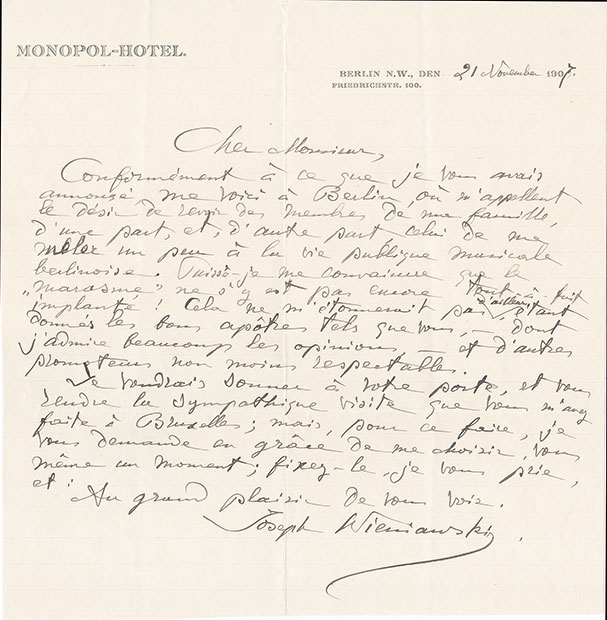 MONOPOL-HOTEL.
BERLIN N.W., DEN 21 November 1907.
FRIEDRICHSTR. 100.
Cher Monsieur,
Conformément à ce que je vous avais
annoncé, me voici à Berlin, où m'appellent
le désir de revoir des membres de ma famille,
d'une part, et, d'autre part celui de me
mêler un peu à la vie publique musicale
berlinoise. Puissé-je me convaincre que le
„marasme" ne s'y est pas encore tout à fait
implanté! Cela ne m'étonnerait pas d'ailleurs, étant
donnés les bons apôtres tels que vous, – dont
j'admire beaucoup les opinions – et d'autres
promoteurs non moins respectables.
Je voudrais sonner à votre porte, et vous
rendre la sympathique visite que vous m'avez
faite à Bruxelles; mais, pour ce faire, je
vous demande en grâce de me choisir vous
même un moment; fixez-le, je vous prie,
et:
Au grand plaisir de vous voir.
Joseph Wieniawski